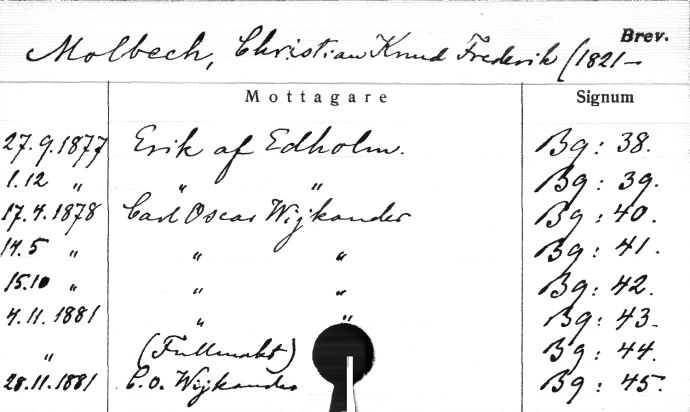 Brev.
Molbech, Christian Knud Frederik (1821–
Mottagare Signum
27.9.1877 Erik af Edholm. Bg: 38.
1.12 „ „ „ Bg: 39.
17.4.1878 Carl Oscar Wijkander Bg: 40.
14.5 „ „ „ Bg: 41.
15.10 „ „ „ Bg: 42.
4.11.1881 „ „ Bg: 43.
„ (Fullmakt) Bg: 44.
28.11.1881 C.O. Wijkander Bg: 45.